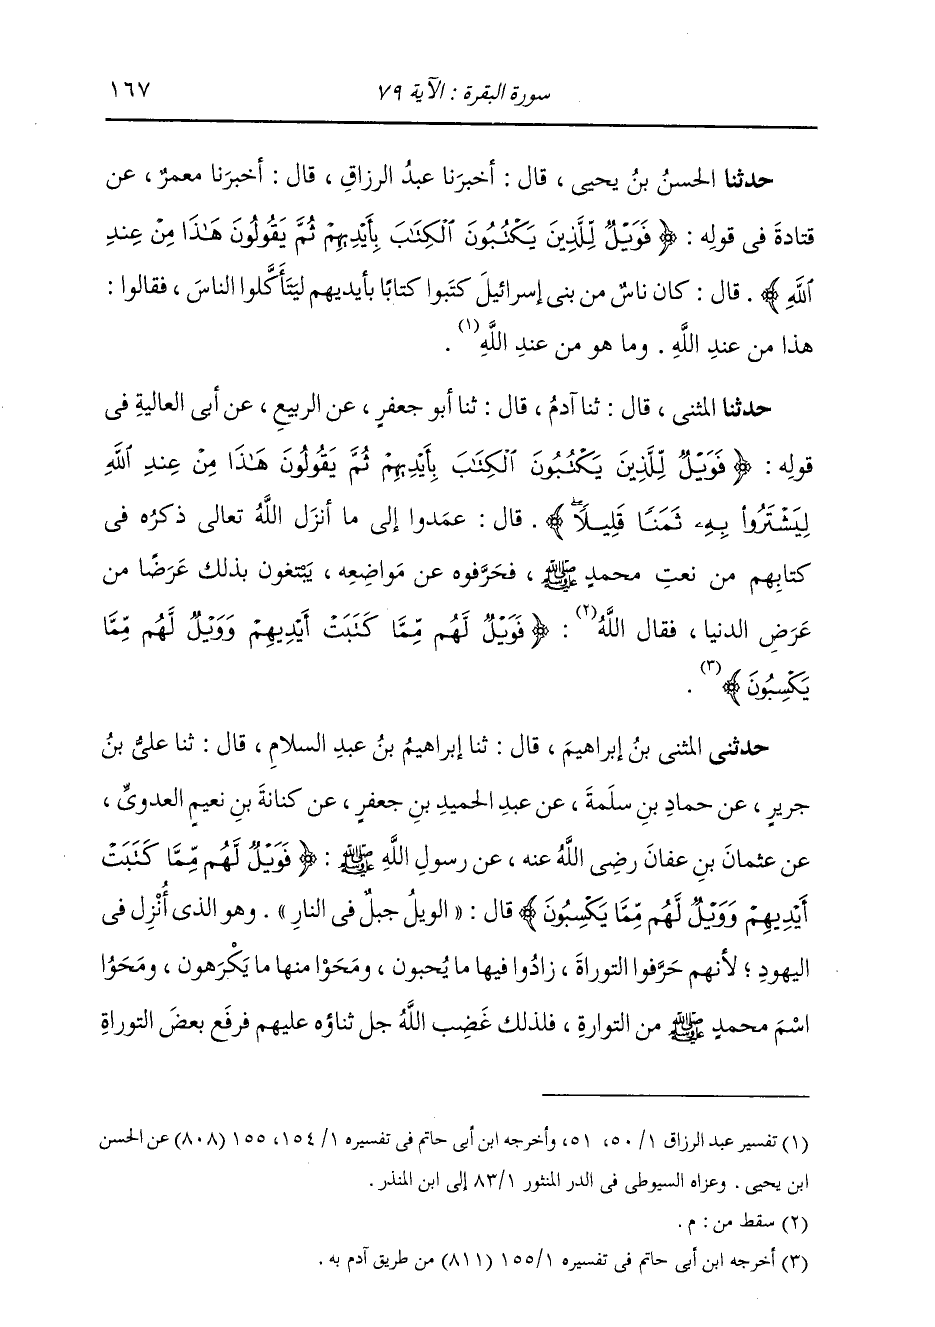 سورة البقرة : الآية ٧٩ ١٦٧
حدثنا الحسنُ بنُ يحيى ، قال : أخبرَنا عبدُ الرزاقِ ، قال : أخبرَنا معمرٌ ، عن
قتادةَ فى قولِه : ﴿ فَوَيْلٌ لِّلَّذِينَ يَكْتُبُونَ ٱلْكِتَٰبَ بِأَيْدِيهِمْ ثُمَّ يَقُولُونَ هَٰذَا مِنْ عِندِ
ٱللَّهِ ﴾ . قال : كان ناسٌ من بنى إسرائيلَ كتَبوا كتابًا بأيديهم ليَتَأَكَّلوا الناسَ ، فقالوا :
هذا من عندِ اللَّهِ . وما هو من عندِ اللَّهِ(١) .
حدثنا المثنى ، قال : ثنا آدمُ ، قال : ثنا أبو جعفرٍ ، عن الربيعِ ، عن أبى العاليةِ فى
قولِه : ﴿ فَوَيْلٌ لِّلَّذِينَ يَكْتُبُونَ ٱلْكِتَٰبَ بِأَيْدِيهِمْ ثُمَّ يَقُولُونَ هَٰذَا مِنْ عِندِ ٱللَّهِ
لِيَشْتَرُوا۟ بِهِۦ ثَمَنًا قَلِيلًاۖ ﴾ . قال : عمَدوا إلى ما أنزَل اللَّهُ تعالى ذكرُه فى
كتابِهم من نعتِ محمدٍ ﷺ ، فحَرَّفوه عن مَواضِعِه ، يَبْتغون بذلك عَرَضًا من
عَرَضِ الدنيا ، فقال اللَّهُ(٢) : ﴿ فَوَيْلٌ لَّهُم مِّمَّا كَتَبَتْ أَيْدِيهِمْ وَوَيْلٌ لَّهُم مِّمَّا
يَكْسِبُونَ ﴾(٣) .
حدثنى المثنى بنُ إبراهيمَ ، قال : ثنا إبراهيمُ بنُ عبدِ السلامِ ، قال : ثنا علىُّ بنُ
جريرٍ ، عن حمادِ بنِ سلَمةَ ، عن عبدِ الحميدِ بنِ جعفرٍ ، عن كنانةَ بنِ نعيمٍ العدوىِّ ،
عن عثمانَ بنِ عفانَ رضِى اللَّهُ عنه ، عن رسولِ اللَّهِ ﷺ : ﴿ فَوَيْلٌ لَّهُم مِّمَّا كَتَبَتْ
أَيْدِيهِمْ وَوَيْلٌ لَّهُم مِّمَّا يَكْسِبُونَ ﴾ قال : « الويلُ جبلٌ فى النارِ » . وهو الذى أُنْزِل فى
اليهودِ ؛ لأنهم حَرَّفوا التوراةَ ، زادُوا فيها ما يُحبون ، ومَحَوْا منها ما يَكْرَهون ، ومَحَوُا
اسْمَ محمدٍ ﷺ من التوارةِ ، فلذلك غَضِب اللَّهُ جل ثناؤه عليهم فرفَع بعضَ التوراةِ
(١) تفسير عبد الرزاق ١/ ٥٠، ٥١، وأخرجه ابن أبى حاتم فى تفسيره ١/ ١٥٤، ١٥٥ (٨٠٨) عن الحسن
ابن يحيى . وعزاه السيوطى فى الدر المنثور ٨٣/١ إلى ابن المنذر .
(٢) سقط من : م .
(٣) أخرجه ابن أبى حاتم فى تفسيره ١٥٥/١ (٨١١) من طريق آدم به .